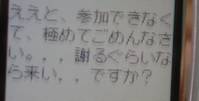 ええと、参加できなく
て、極めてごめんなさ
い。，，謝るぐらいな
ら来い，，ですか？